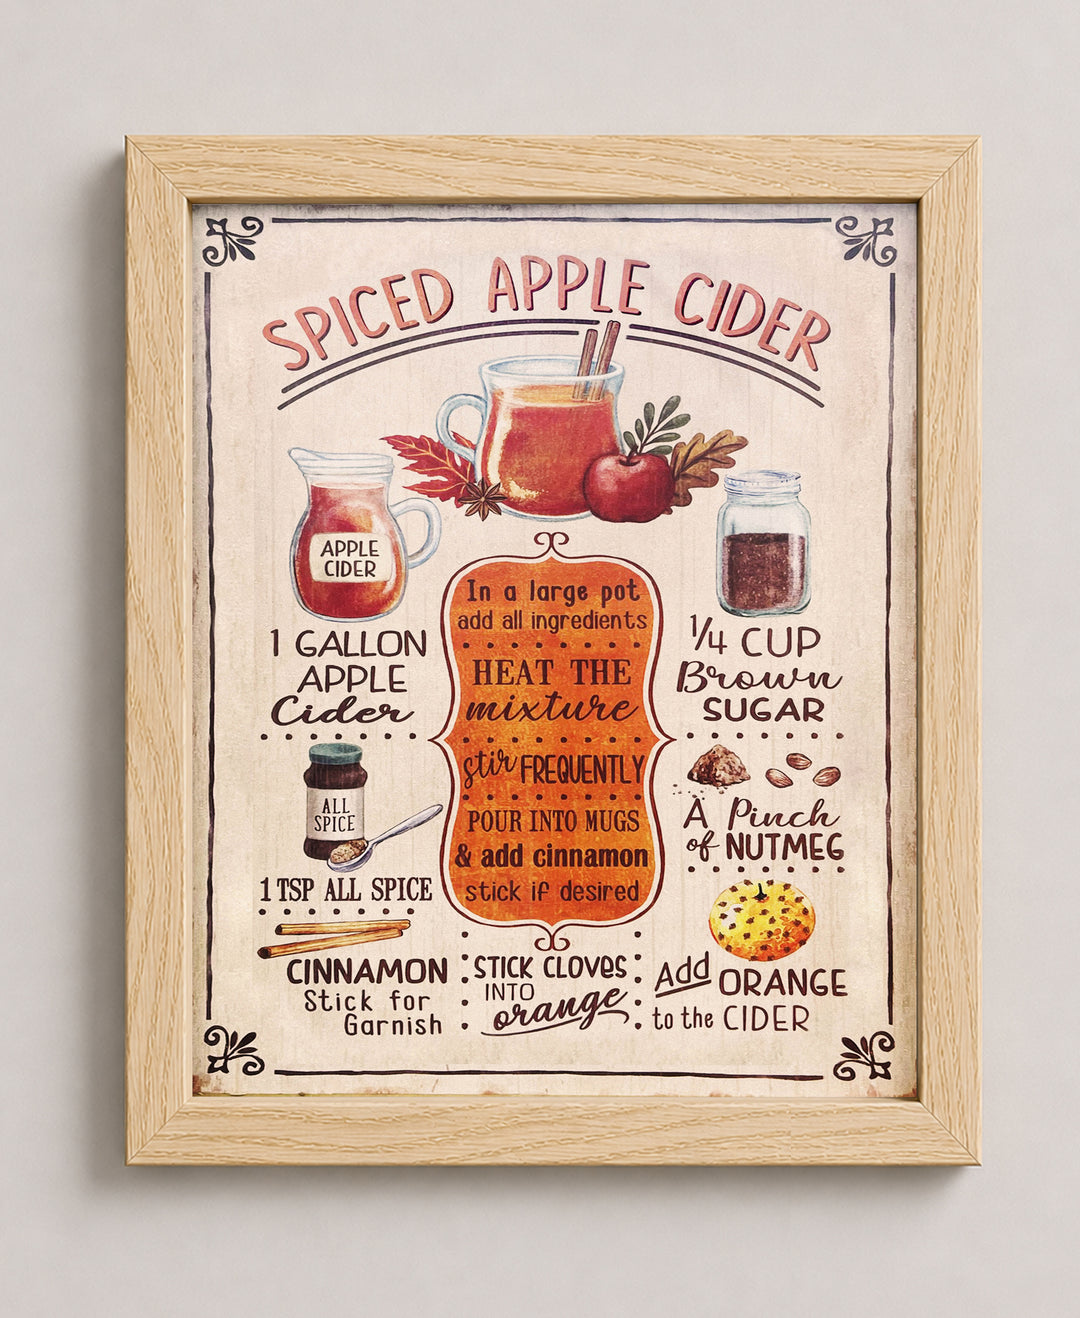 SPICED APPLE CIDER
APPLE
CIDER
1 GALLON
APPLE
Cider
ALL
SPICE
1 TSP ALL SPICE
CINNAMON
Stick for
Garnish
In a large pot
add all ingredients
HEAT THE
mixture
stir FREQUENTLY
POUR INTO MUGS
& add cinnamon
stick if desired
STICK CLOVES
INTO
orange
1/4 CUP
Brown
SUGAR
A Pinch
of NUTMEG
Add ORANGE
to the CIDER